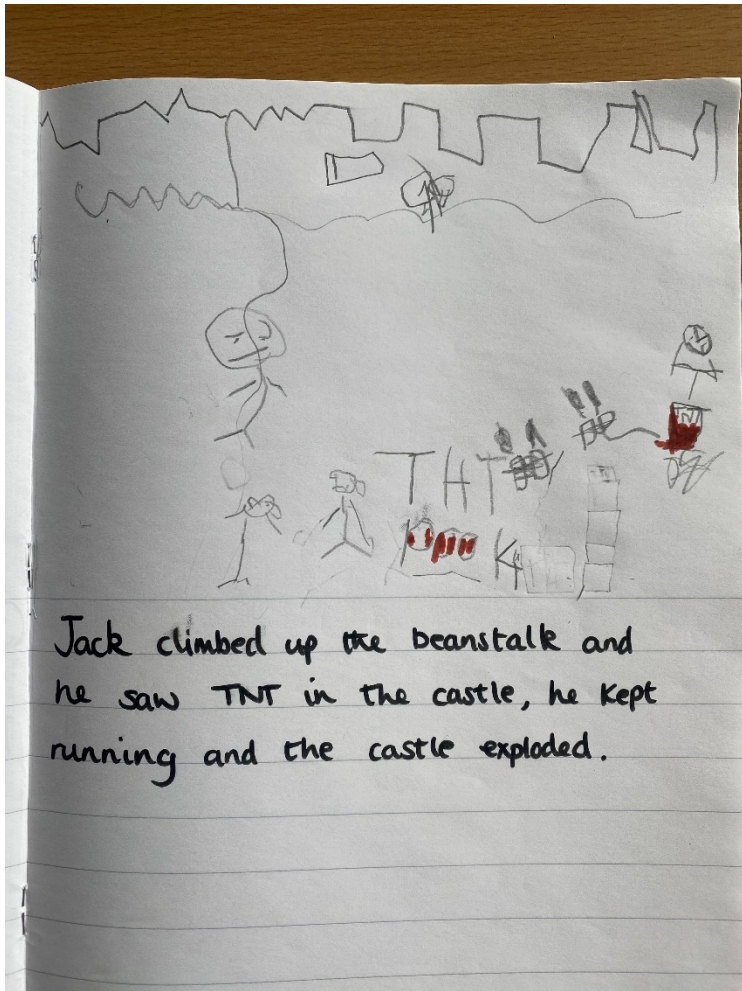 THT
Jack climbed up the beanstalk and
he saw TNT in the castle, he kept
running and the castle exploded.